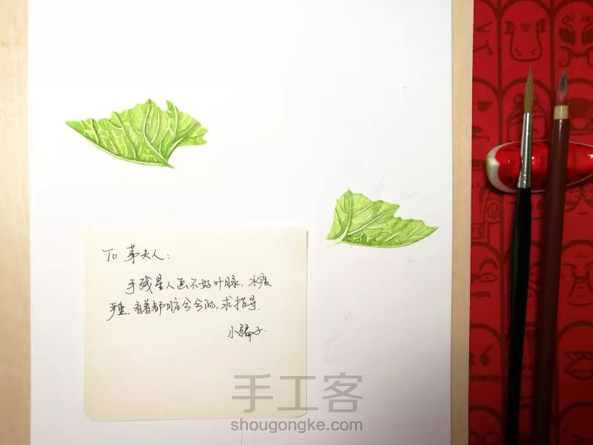 To 茅夫人:
手残星人画不好叶脉,水痕
严重,看着都脏兮兮的,求指导.
小骗子.
手工客
shougongke.com